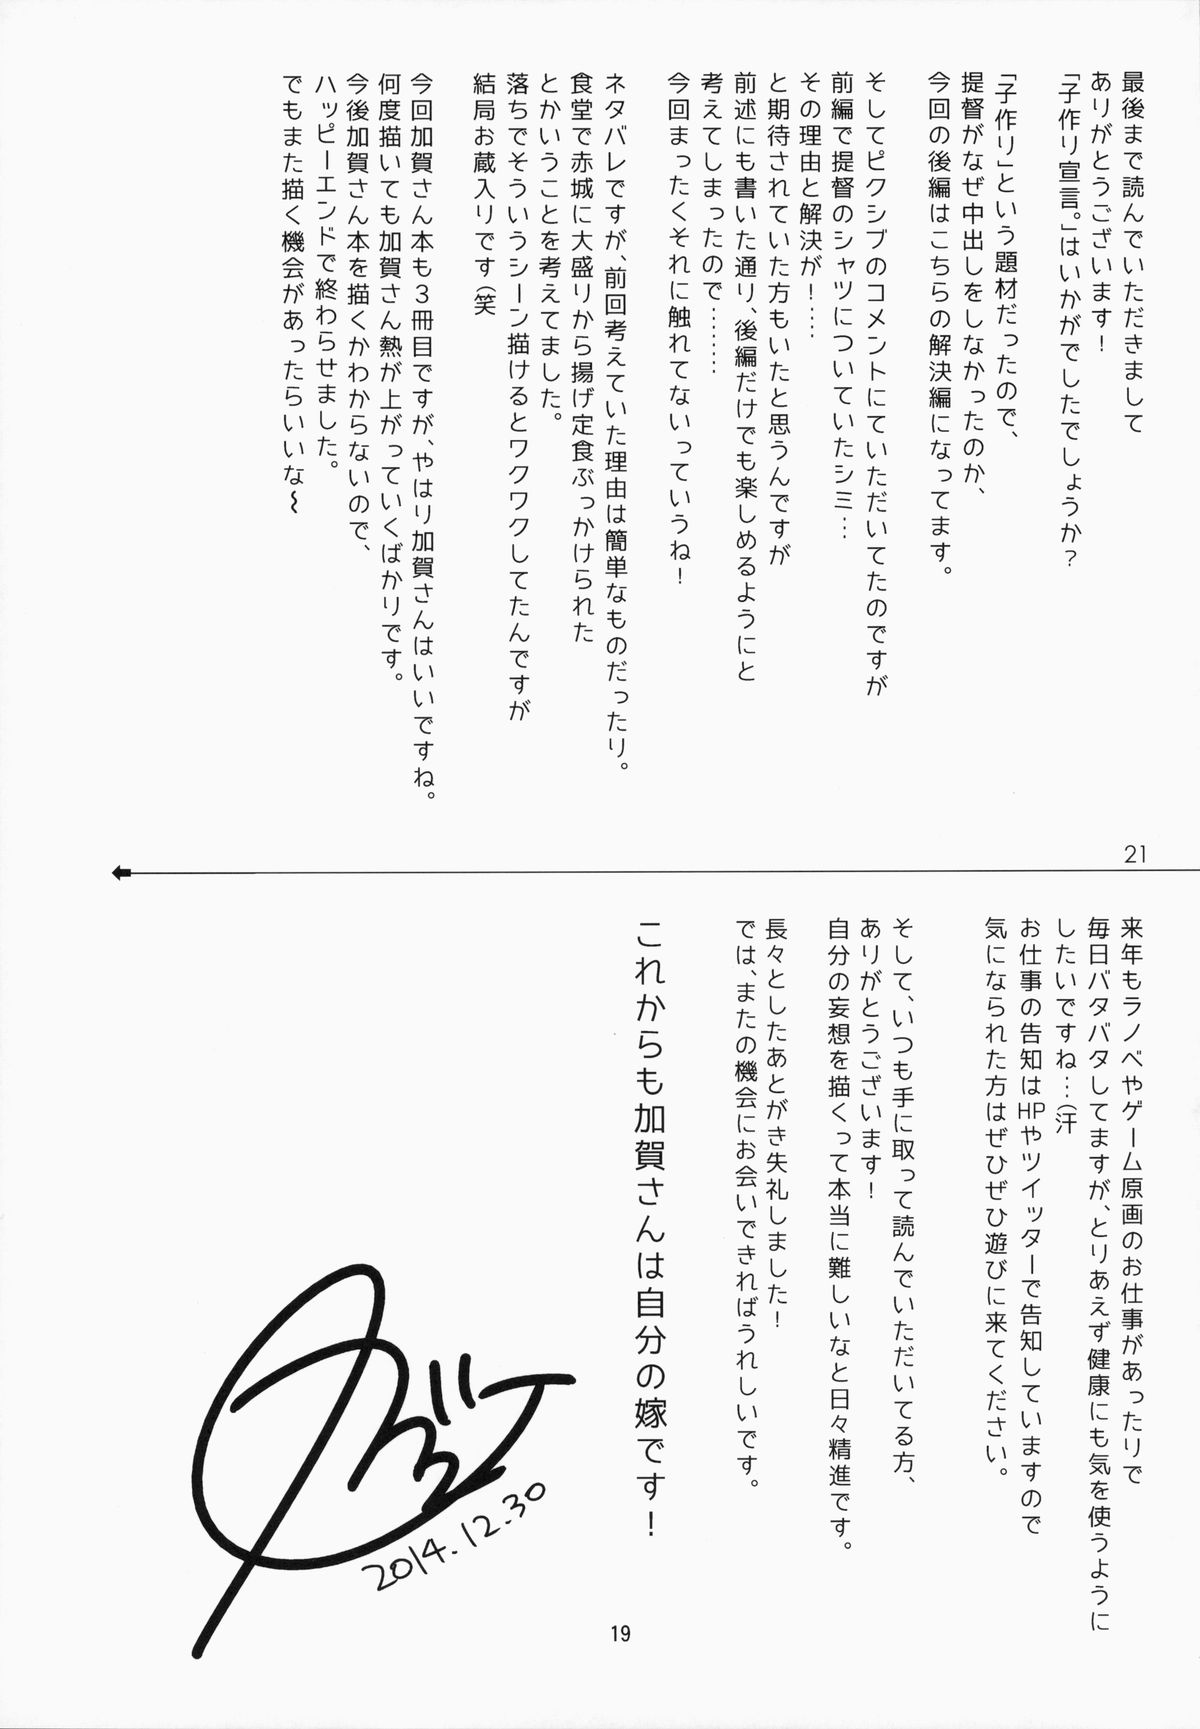 最後まで読んでいただきまして
ありがとうございます！
「子作り宣言。」はいかがでしたでしょうか？
「子作り」という題材だったので、
提督がなぜ中出しをしなかったのか、
今回の後編はこちらの解決編になってます。
そしてピクシブのコメントにていただいてたのですが
前編で提督のシャツについていたシミ…
その理由と解決が！……
と期待されていた方もいたと思うんですが
前述にも書いた通り、後編だけでも楽しめるようにと
考えてしまったので………
今回まったくそれに触れてないっていうね！
ネタバレですが、前回考えていた理由は簡単なものだったり。
食堂で赤城に大盛りから揚げ定食ぶっかけられた
とかいうことを考えてました。
落ちでそういうシーン描けるとワクワクしてたんですが
結局お蔵入りです（笑
今回加賀さん本も３冊目ですが、やはり加賀さんはいいですね。
何度描いても加賀さん熱が上がっていくばかりです。
今後加賀さん本を描くかわからないので、
ハッピーエンドで終わらせました。
でもまた描く機会があったらいいな～
21
来年もラノベやゲーム原画のお仕事があったりで
毎日バタバタしてますが、とりあえず健康にも気を使うように
したいですね…（汗
お仕事の告知はHPやツイッターで告知していますので
気になられた方はぜひぜひ遊びに来てください。
そして、いつも手に取って読んでいただいてる方、
ありがとうございます！
自分の妄想を描くって本当に難しいなと日々精進です。
長々としたあとがき失礼しました！
では、またの機会にお会いできればうれしいです。
これからも加賀さんは自分の嫁です！
2014.12.30
19